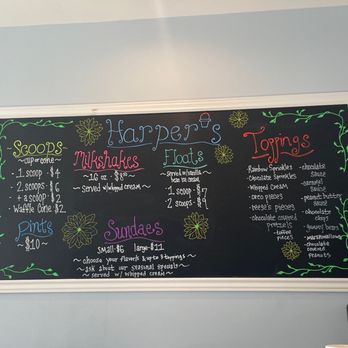 Harper's
Scoops
~cup or cone~
1 scoop - $4
2 scoops - $6
+ a scoop - $2
Waffle Cone $2
Pints
$10~
Milkshakes
~16 oz ~
~ served w/whipped cream ~
Floats
1 scoop - $7
2 scoops - $9
Sundaes
small-$6 large-$11
~ choose your flavors & up to 3 toppings ~
~ask about our seasonal specials~
~ served w/ whipped cream ~
Toppings
- Rainbow Sprinkles
- Chocolate Sprinkles
- Whipped Cream
- Oreo pieces
- Reese's pieces
- chocolate covered
pretzels
- toffee
pieces
- chocolate
sauce
- caramel
sauce
- peanut butter
sauce
- chocolate
chips
- gummy bears
- marshmallows
- chocolate
covered
peanuts